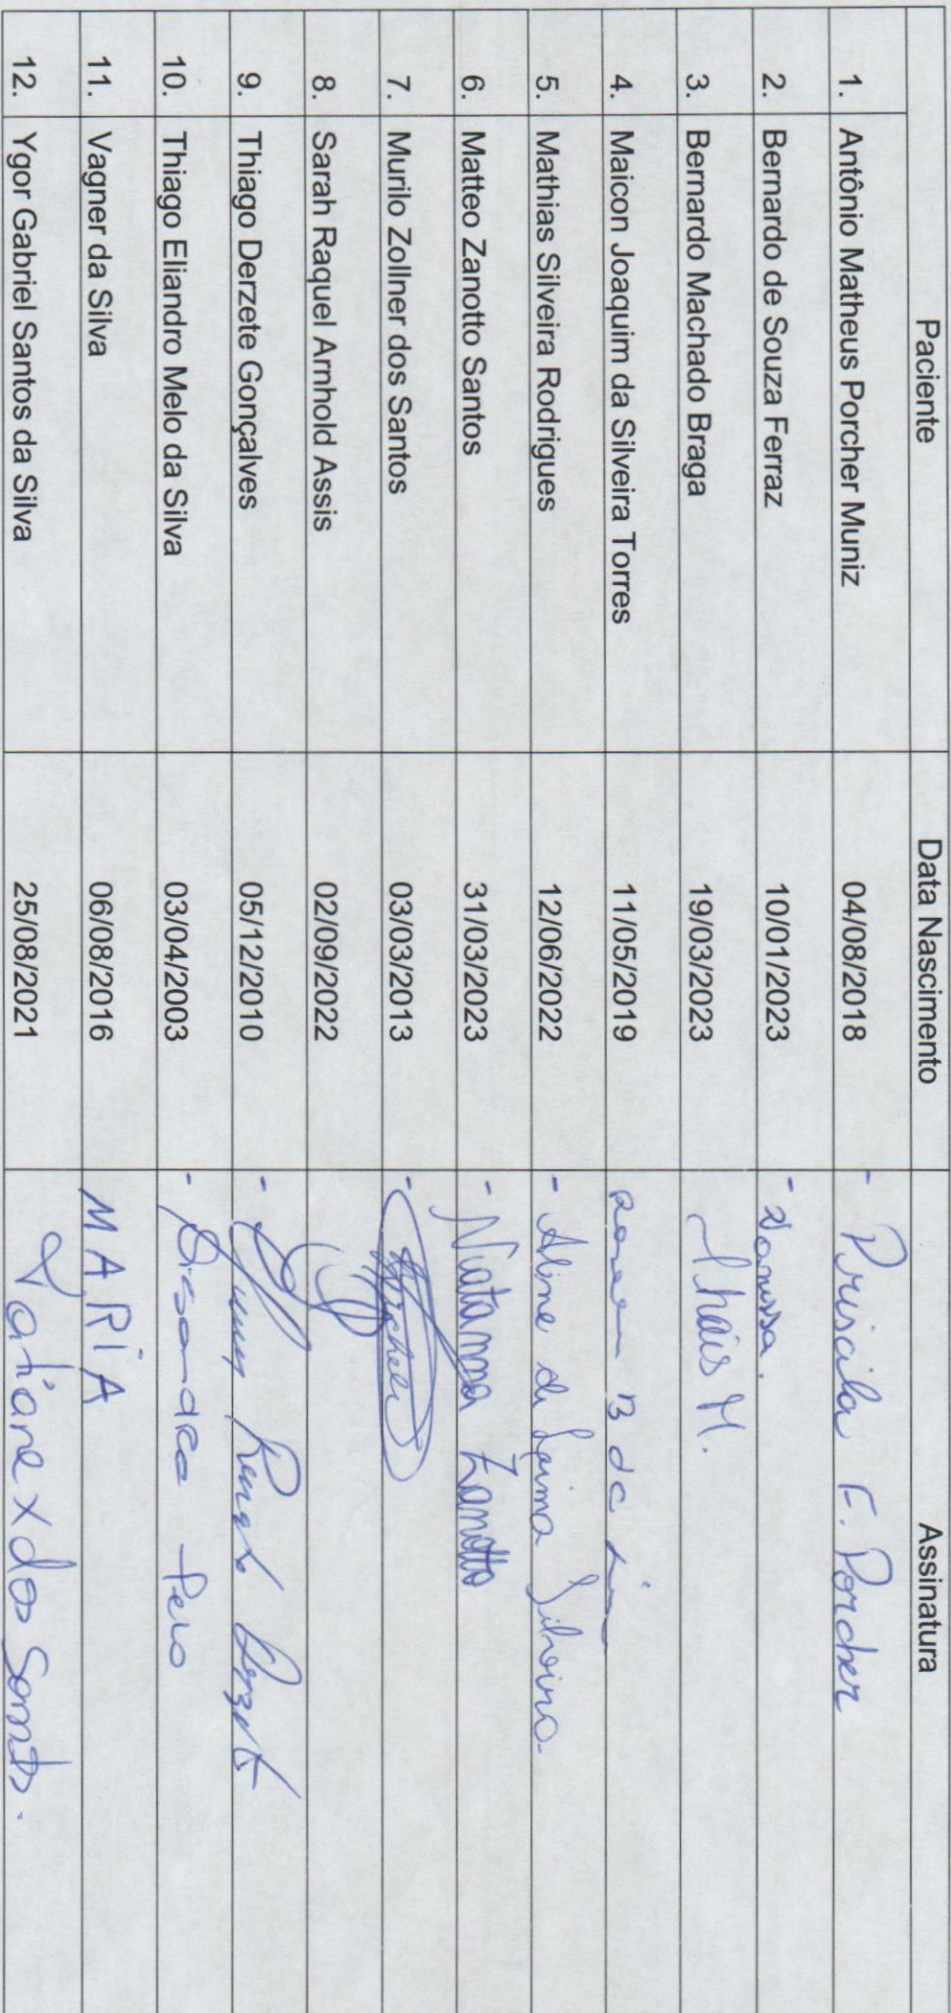 Paciente Data Nascimento Assinatura
1. Antônio Matheus Porcher Muniz 04/08/2018 - Priscila F. Porcher
2. Bernardo de Souza Ferraz 10/01/2023 - Vanussa.
3. Bernardo Machado Braga 19/03/2023 Thais M.
4. Maicon Joaquim da Silveira Torres 11/05/2019
5. Mathias Silveira Rodrigues 12/06/2022 - Aline de Laima Silveira
6. Matteo Zanotto Santos 31/03/2023 - Natanna Zanotto
7. Murilo Zollner dos Santos 03/03/2013 -
8. Sarah Raquel Arnhold Assis 02/09/2022
9. Thiago Derzete Gonçalves 05/12/2010 -
10. Thiago Eliandro Melo da Silva 03/04/2003 -
11. Vagner da Silva 06/08/2016 MARIA
12. Ygor Gabriel Santos da Silva 25/08/2021 - Tatiane x dos Santos.